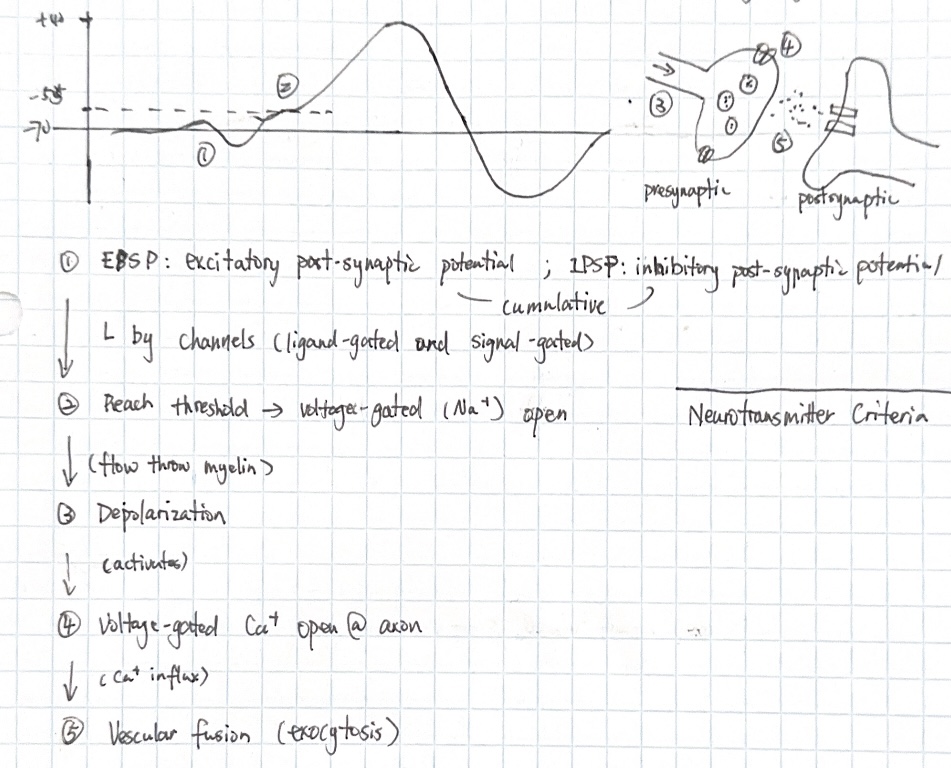 +40
-55
-70
①
②
③
④
⑤
presynaptic
postsynaptic
① EPSP: excitatory post-synaptic potential ; IPSP: inhibitory post-synaptic potential
cumulative
L by channels (ligand-gated and signal-gated)
② Reach threshold → voltage-gated (Na⁺) open
Neurotransmitter Criteria
↓ (flow throw myelin)
③ Depolarization
↓ (activates)
④ Voltage-gated Ca⁺ open @ axon
↓ (Ca⁺ influx)
⑤ Vescular fusion (exocytosis)